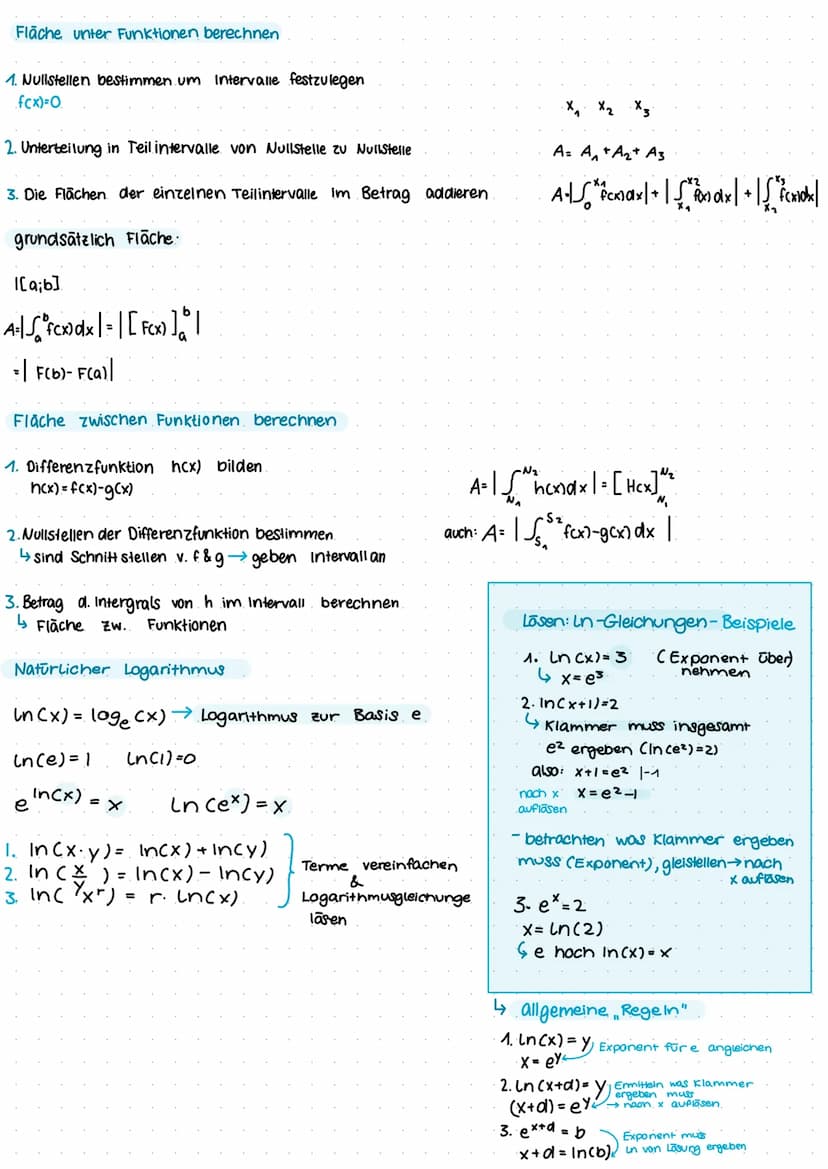 Fläche unter Funktionen berechnen
1. Nullstellen bestimmen um Intervalle festzulegen
f(x)=0
x₁ x₂ x₃
2. Unterteilung in Teilintervalle von Nullstelle zu Nullstelle
A= A₁+A₂+A₃
3. Die Flächen der einzelnen Teilintervalle im Betrag addieren
A=|∫₀^x₁ f(x)dx|+|∫x₁^x₂ f(x)dx|+|∫x₂^x₃ f(x)dx|
grundsätzlich Fläche:
I[a;b]
A=|∫ₐᵇ f(x)dx|=|[F(x)]ₐᵇ|
=|F(b)-F(a)|
Fläche zwischen Funktionen berechnen
1. Differenzfunktion h(x) bilden
h(x)=f(x)-g(x)
A=|∫N₁^N₂ h(x)dx|=[H(x]N₁^N₂
2. Nullstellen der Differenzfunktion bestimmen
↳ sind Schnittstellen v. f & g → geben Intervall an
auch: A= |∫s₁^s₂ f(x)-g(x) dx |
3. Betrag d. Intergrals von h im Intervall berechnen
↳ Fläche zw. Funktionen
Natürlicher Logarithmus
ln(x) = logₑ(x) → Logarithmus zur Basis e
ln(e)=1 ln(1)=0
e^ln(x) = x ln(eˣ)=x
1. ln(x·y)= ln(x)+ln(y)
2. ln(x/y)= ln(x)-ln(y)
3. ln(xʳ) = r· ln(x)
Terme vereinfachen
&
Logarithmusgleichunge
lösen
Lösen: ln-Gleichungen-Beispiele
1. ln(x)=3 (Exponent über)
nehmen
↳ x=e³
2. ln(x+1)=2
↳ Klammer muss insgesamt
e² ergeben (ln(e²)=2)
also: x+1=e² |-1
nach x x=e²-1
auflösen
- betrachten was Klammer ergeben
muss (Exponent), gleistellen→nach
x auflösen
3. eˣ=2
x=ln(2)
↳ e hoch ln(x)=x
↳ allgemeine „Regeln"
1. ln(x)=y Exponent für e angleichen
x=eʸ
2. ln(x+d)=y Ermitteln was Klammer
ergeben muss
(x+d)=eʸ → nach x auflösen
3. eˣ⁺ᵈ = b Exponent muss
x+d=ln(b) ln von Lösung ergeben